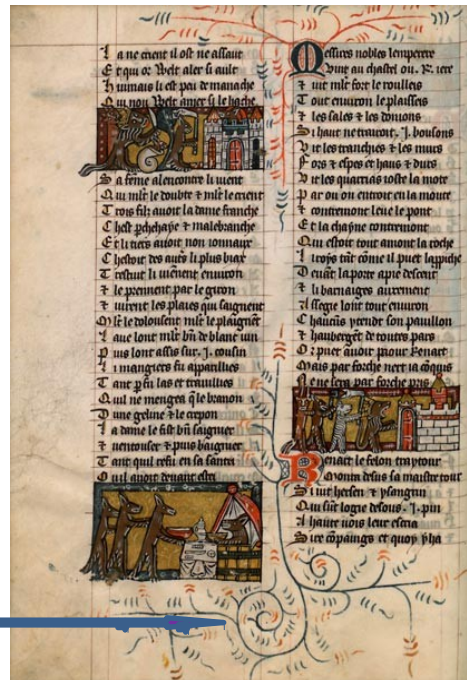 I a ne crient il ost ne assaut
E t qui or velt aler si ault
H uimais li est peu de manache
Q ui non velt amer si le hache
S a feme alencontre li vient
Q ui mlt le doubte & mlt le crient
T rois filz avoit la dame franche
C hest pchehaye & malebranche
E t li tiers avoit non
C hestoit des aues li plus biax
T restuit li vienent environ
& le prennent par le giron
& virent les plaies qui saignent
M lt le dolousent mlt le plaignent
I aue lont mlt bn de blanc vin
P uis lont assis sur .j. cousin
L i mangiers fu apparillies
T ant p fu las et travillies
Q ui ne menga q le braon
D une geline & le crepon
L a dame le fist bn saignier
& ventouser & puis baignier
T ant quil refu en sa sante
O u il avoit devant este
M essires nobles lemperere
V int au chastel ou .R. iere
& vit mlt fort le roulleis
T out environ le plasseis
& les sales & les donions
S i haut ne traioit .J. bousons
V it les tranchies & les murs
F ors & espes et haus & durs
V it les quarriax coste la mote
P ar ou on entroit en la
& contremont leve le pont
E t la chayne contremont
Q ui estoit tout amont la roche
L i roys tāt cōme il puet lappche
D evāt la porte a pie descent
& li barnaiges
A ssegie lont tout environ
C haucūs ytendt son pavillon
& haubergēt de toutes pars
O r puet avoir paour Renart
M ais par forche nert ia cōquis
N e ne sera par forche pris
R enart le felon traytour
M onta desus sa maistre tour
S i vit hersen & ysangrin
Q ui sūt logie desous .J. pin
A haute vois leur escria
S ire cōpaings et quoy yha